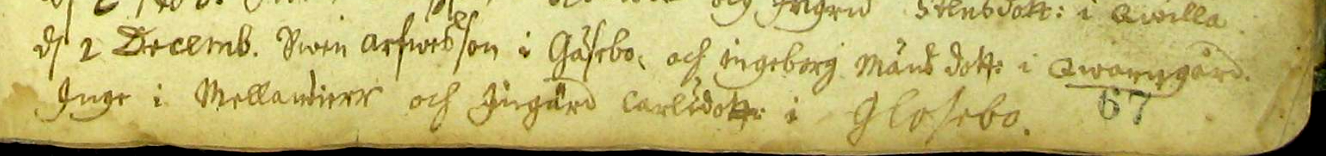 och Ingrid Svensdott: i Qwilla
d/ 2 Decemb. Swen Arfwedsson i Gåsebo, och Ingeborg Månsdott: i Qwarngård.
Inge i Mellanbierr och Ingärd Carlsdott: i Glosebo.
67